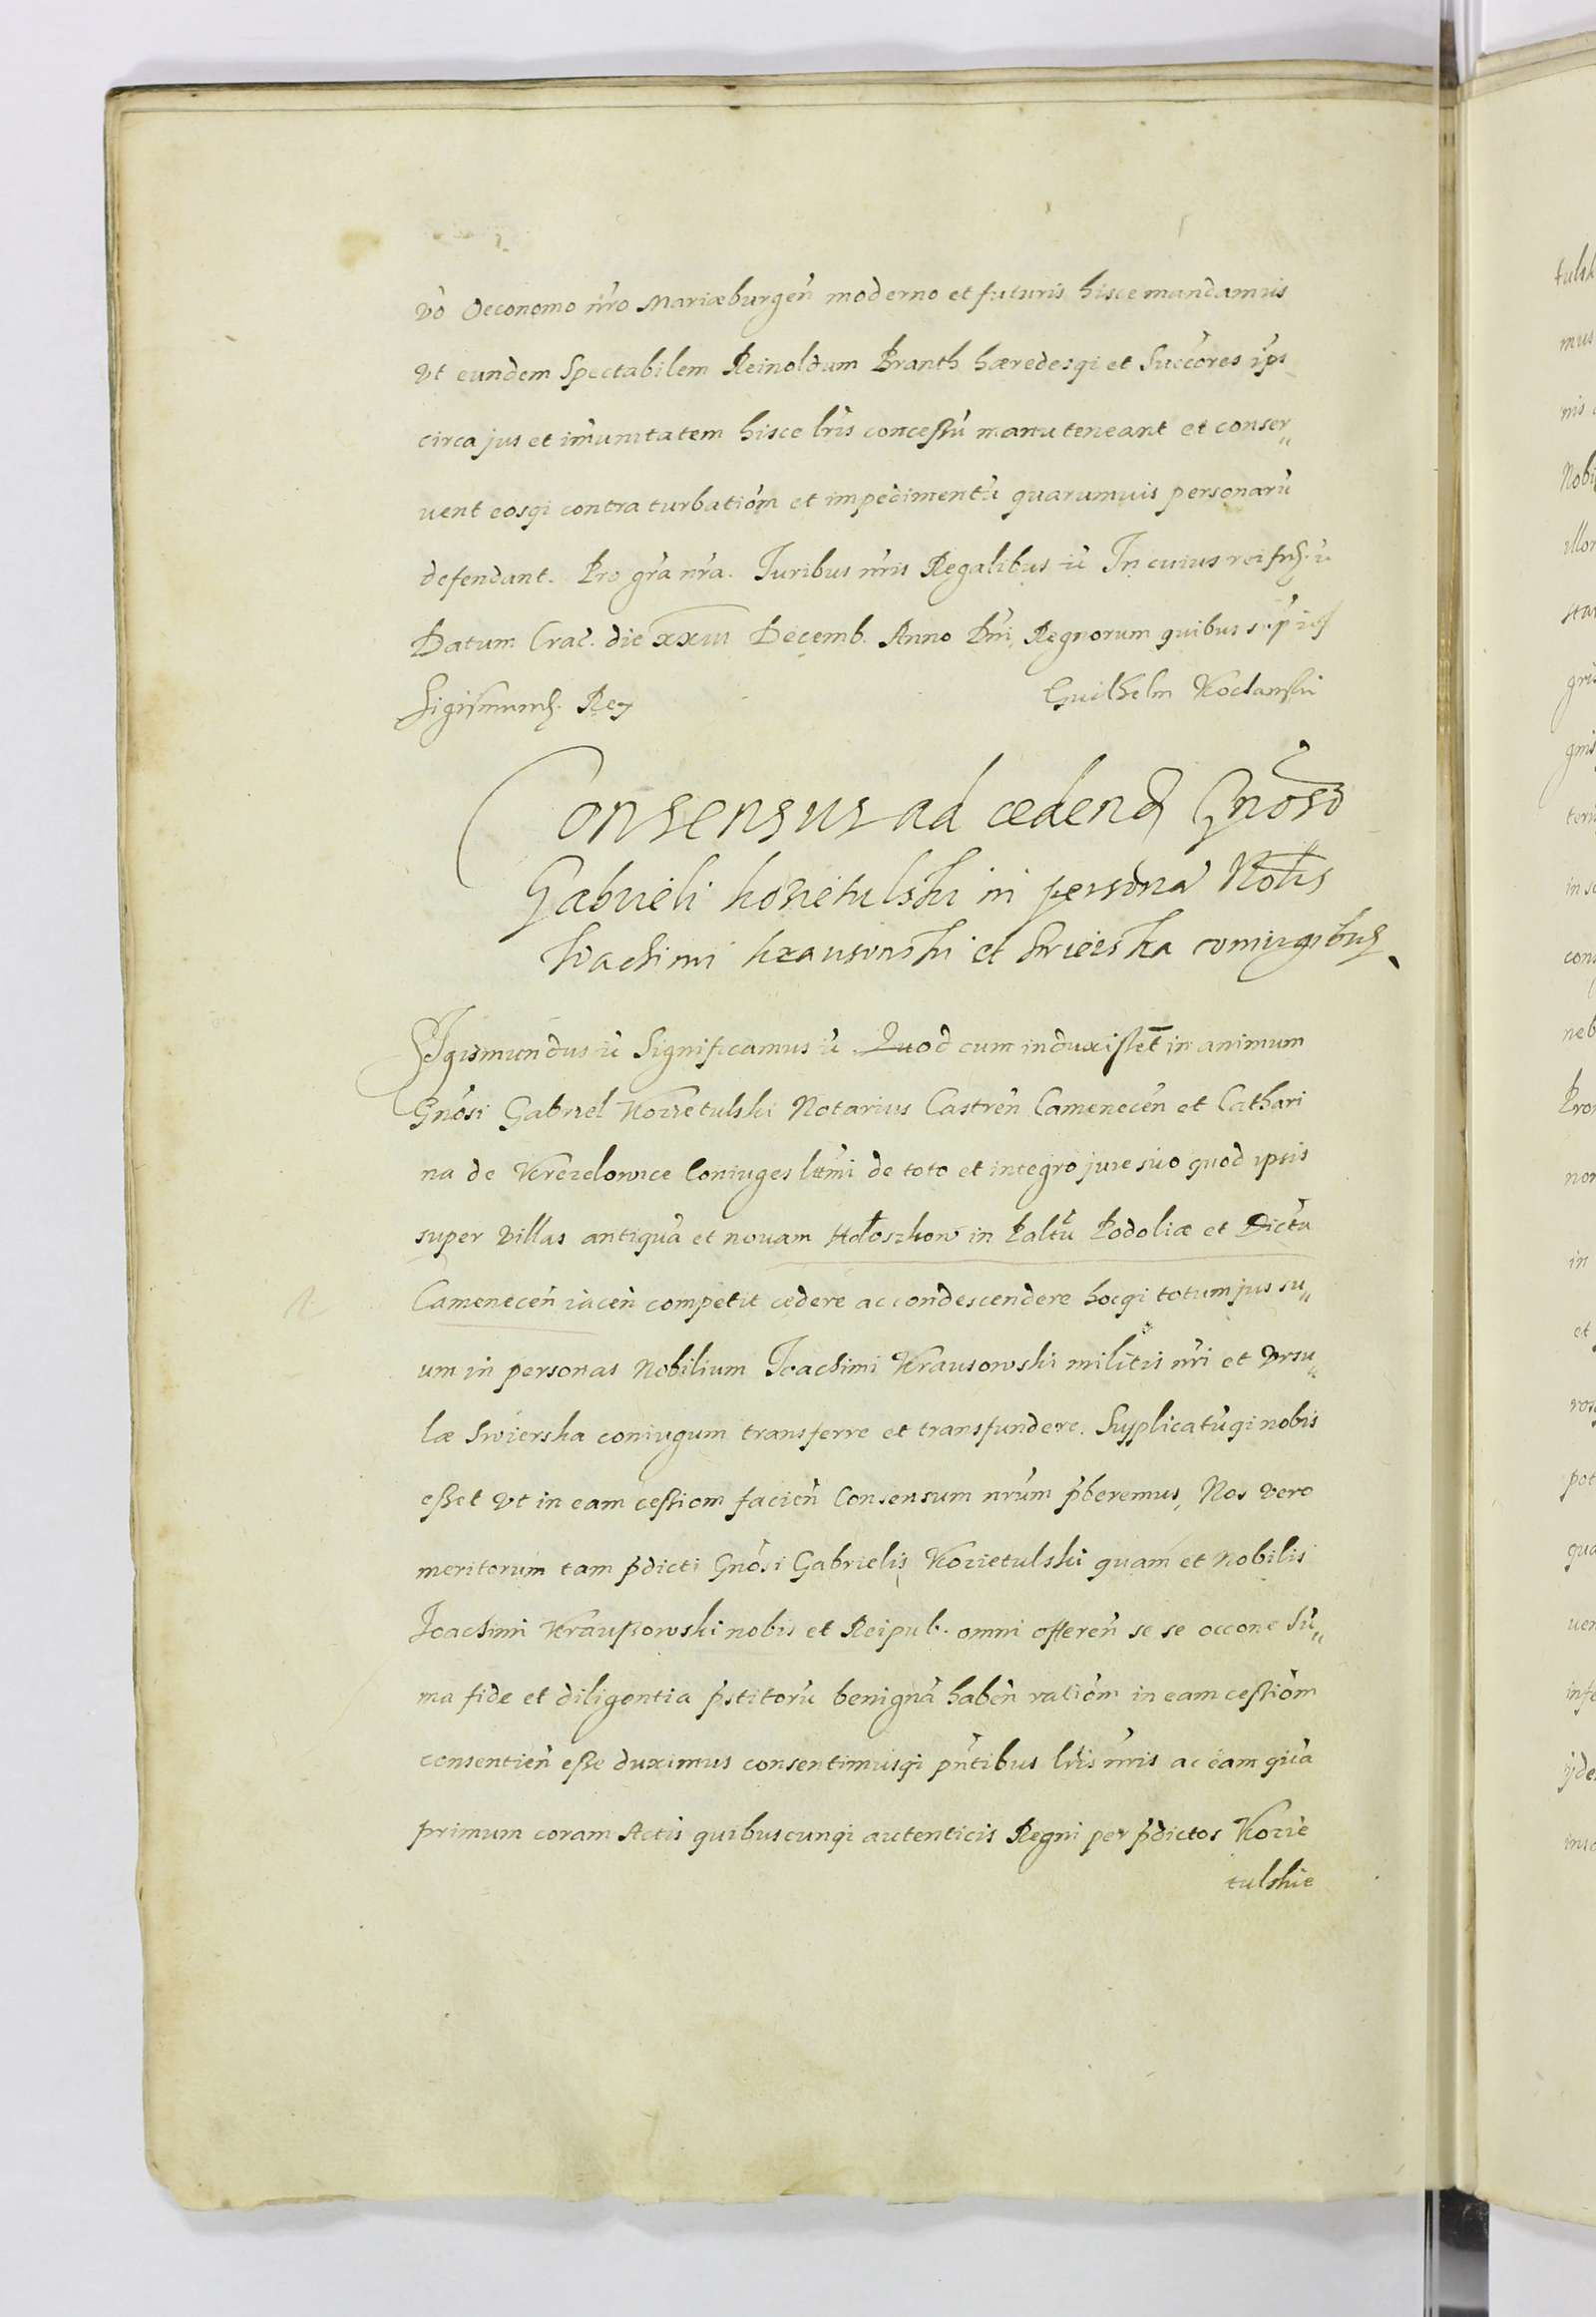 vō Oeconomo nr̄o Mariæburgeń moderno et futuris hisce mandamus
Vt eundem Spectabilem Reinoldum Branth hæredesqi et Succ̄ores ip̄s
circa jus et im̄unitatem hisce lr̄is conceßū manuteneant et conser„
uent eosqi contra turbatiōm et impedimentū quarumuis personarū
defendant. Pro gr̄a nr̄a. Juribus nr̄is Regalibus ic̄ In cuius rei
Datum Crac. die XXIII Decemb. Anno Dn̄i, Regnorum quibus
Sigismund. Rex Guilhelm Koclanski
Consensus ad cedend Gnōso
Gabrieli Kozietulski in persona Nob̄lis
Joachimi Krausowski et Swierska coniugibus
Sigismundus ic̄ Significamus ic̄ Quod cum induxißet in animum
Gnōsi Gabriel Kozietulski Notarius Castreń Camenecēn et Cathari
na de Krezelowice Coniuges de toto et integro jure suo quod ipsis
super Villas antiquā et nouam Hołoszkow in Paltū Podoliæ et Dictū
Camenecen̄ iacen̄ competit cedere ac condescendere hocqi totum jus su„
um in personas Nobilium Joachimi Krausowski militis nr̄i et Vrsu„
læ Swierska coniugum transferre et transfundere. Supplicatūqi nobis
eßet Vt in eam ceßiom facien̄ Consensum nrūm p̄beremus, Nos vero
meritorum tam p̄dicti Gnōsi Gabrielis Kozietulski quam et Nobilis
Joachimi Kraußowski nobis et Reipub. omni offeren̄ se se occone Sū„
ma fide et diligentia p̄stitorū benignā haben̄ ratiōm in eam ceßiōm
consentien̄ eße duximus consentimusqi pn̄tibus lr̄is nr̄is ac eam quā
primum coram Actis quibuscunqi autenticis Regni per p̄dictos Kozie
tulskie